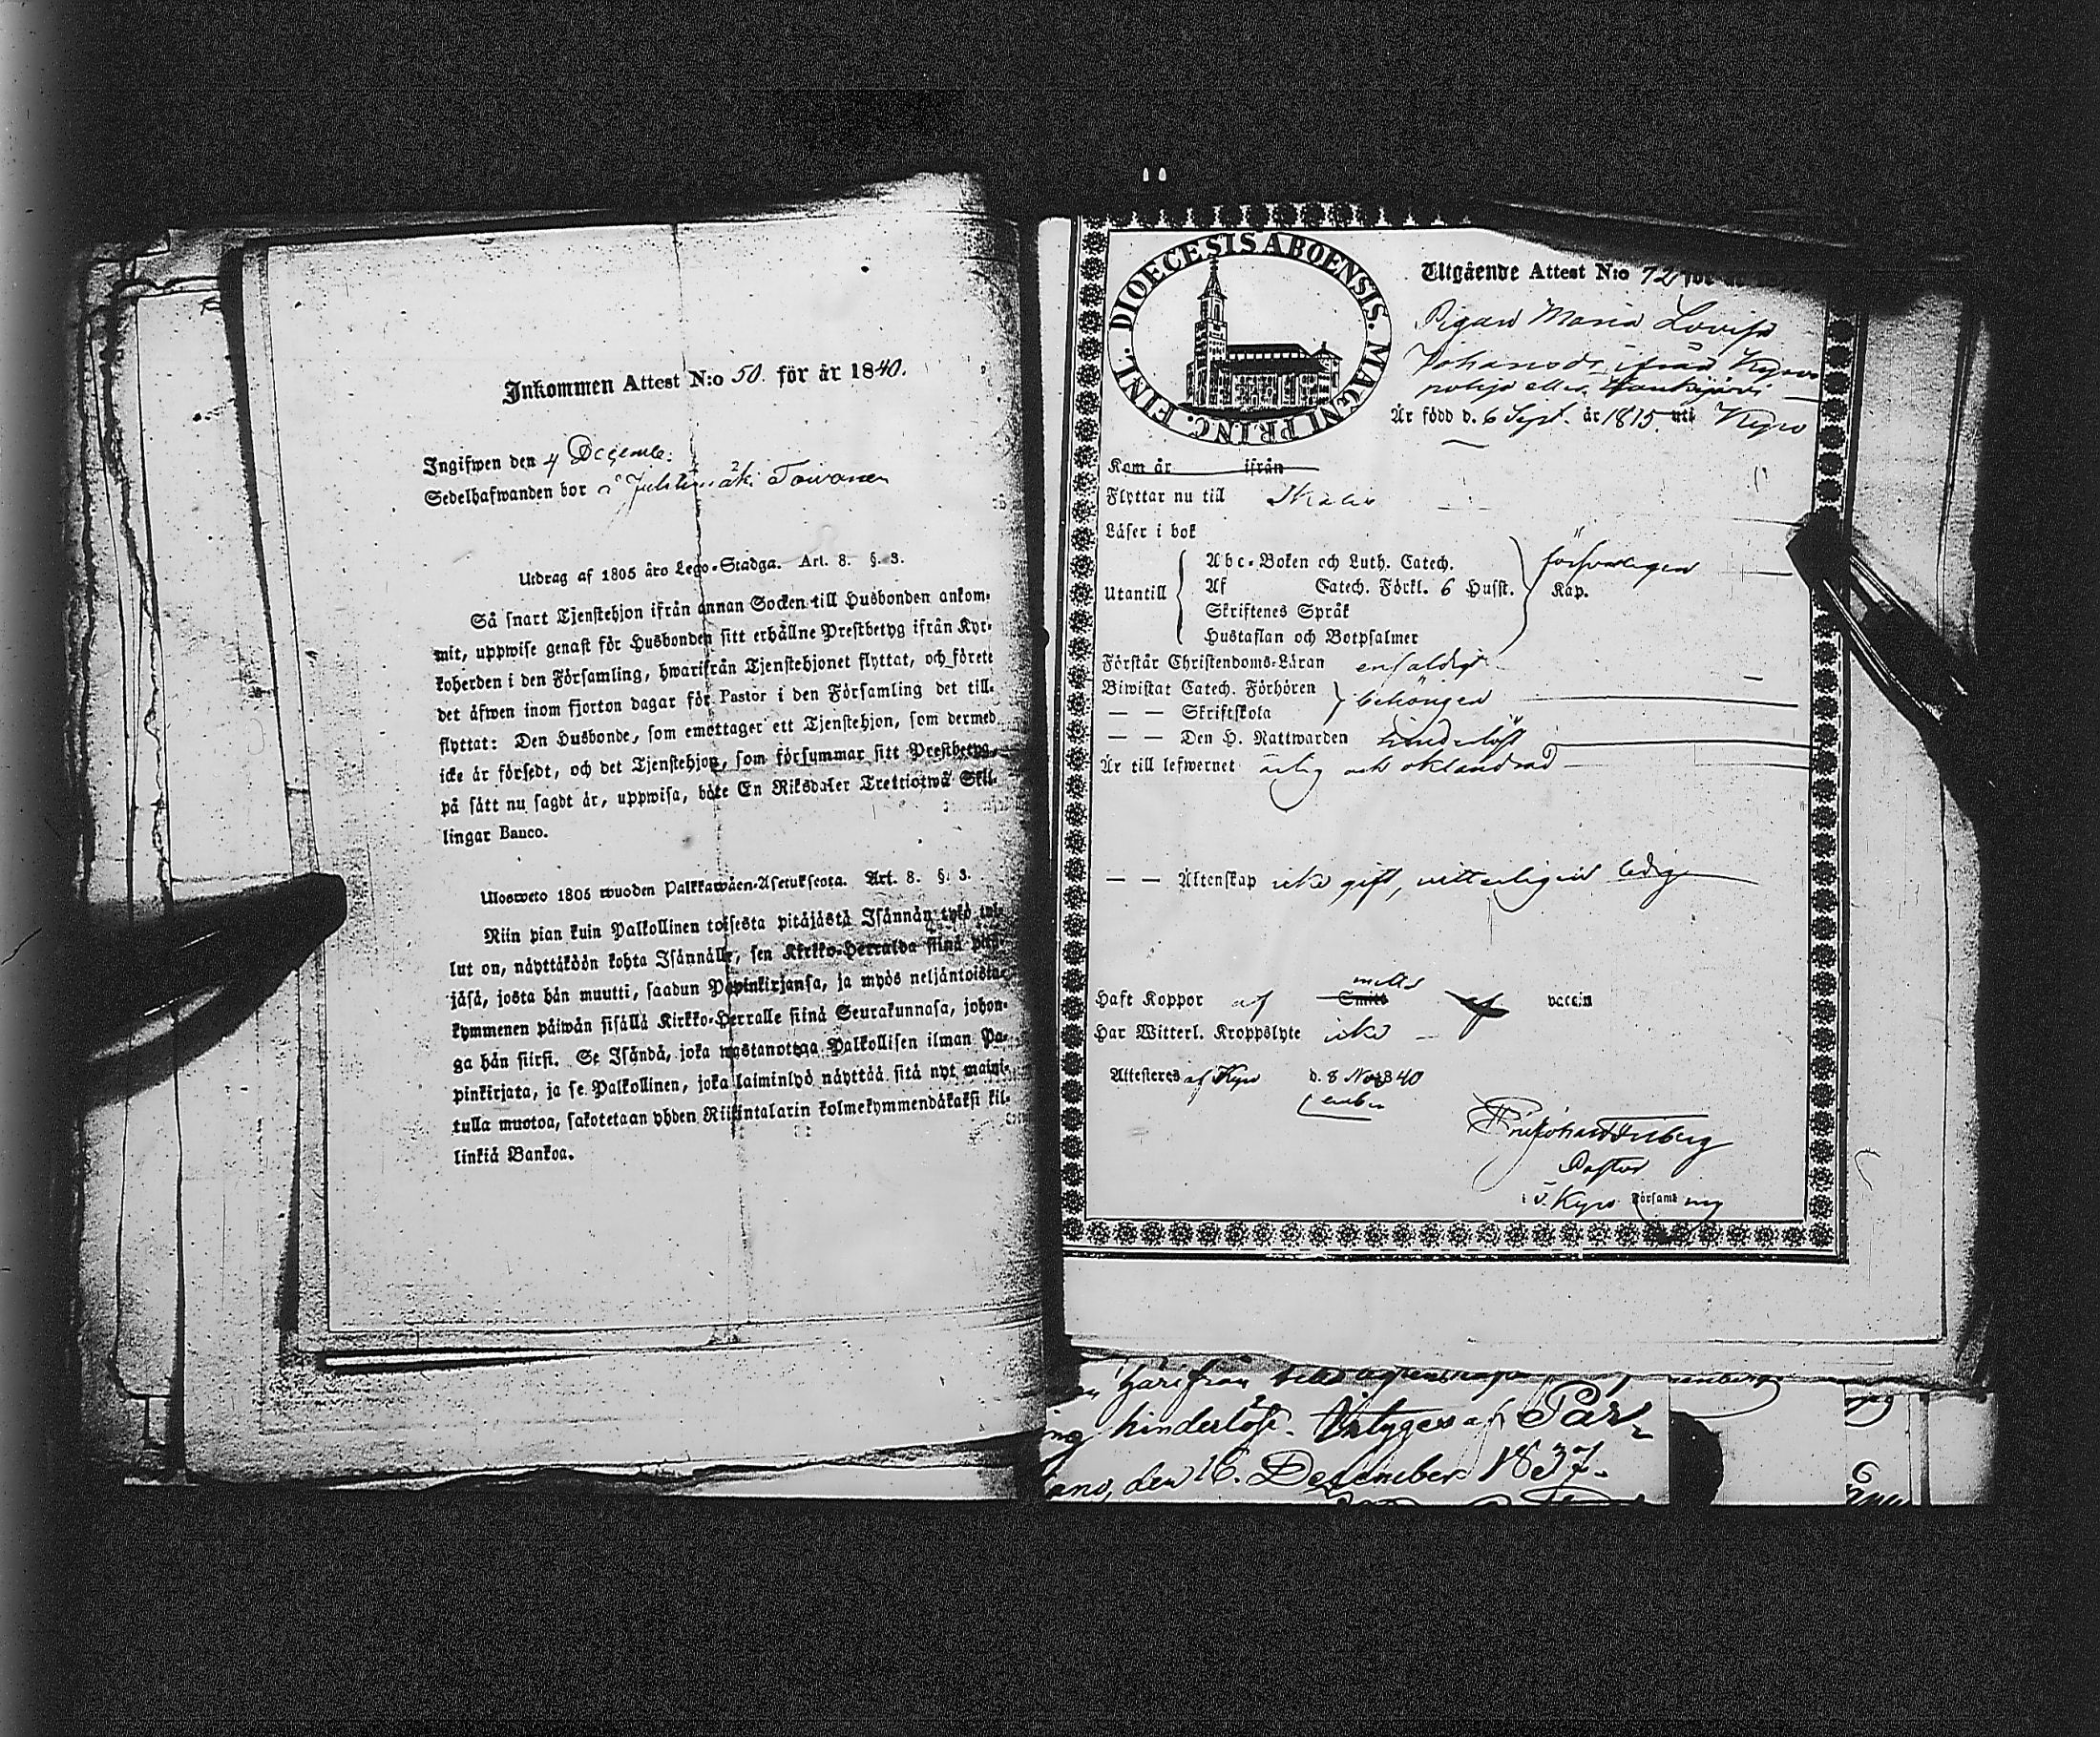 Inkommen Attest N:o 50. för år 1840.
Ingifwen den 4 Decemb.
Sedelhafwanden bor å
Utdrag af 1805 års Lego-Stadga. Art. 8. §. 3.
Så snart Tjenstehjon ifrån annan Socken till Husbonden ankom-
mit, uppwise genast för Husbonden sitt erhållne Prestbetyg ifrån Kyr-
koherden i den Församling, hwarifrån Tjenstehjonet flyttat, och förete
det åfwen inom fjorton dagar för Pastor i den Församling det till-
flyttat: Den Husbonde, som emottager ett Tjenstehjon, som dermed
icke år försedt, och det Tjenstehjon, som försummar sitt Prestbetyg,
på sått nu sagdt år, uppwisa, böte En Riksdaler Trettiotwå Skil-
lingar Banco.
Ulosweto 1805 wuoden Palkkawåen-Asetuksesta. Art. 8. §. 3.
Niin pian kuin Palkollinen toisesta pitåjåstå Isånnån tykö tul-
lut on, nåyttåköön kohta Isånnålle, sen Kirkko-Herralda siinå pitå-
jåså, josta hån muutti, saadun Papinkirjansa, ja myös neljåntoista-
kymmenen påiwån sisållå Kirkko-Herralle siinå Seurakunnasa, johon-
ga hån siirsi. Se Isåndå, joka wastanottaa Palkollisen ilman Pa-
pinkirjata, ja se Palkollinen, joka laiminlyö nåyttåå sitå nyt maini-
tulla muotoa, sakotetaan yhden Riikintalarin kolmekymmendåkaksi kil-
linkiå Bankoa.
DIOECESIS ABOENSIS. MAGNI PRINC. FINL.
Utgående Attest N:o 72 för
Pigan Maria Lovisa
Johansdr ifrån Kyro
eller
År född d. 6 Sept. år 1815. uti Kyro
Kom år ifrån
Flyttar nu till Ikalis
Läser i bok
Utantill
Abc-Boken och Luth. Catech. försvarligen
Af Catech. Förkl. 6 Husst. Kap.
Skriftenes Språk
Hustaflan och Botpsalmer
Förstår Christendoms-Läran enfaldigt
Biwistat Catech. Förhören behörigen
— — Skriftskola
— — Den H. Nattwarden hinderlöst
År till lefwernet ärlig och oklandrad
— — Äktenskap icke gift, witterligen ledig
Haft Koppor af medlb Smitt af vaccin
Har Witterl. Kroppslyte icke
Attesteres af Kyro d. 8 Nov 1840
ember
Pastor
i Kyro Församling
härifrån
ing hinderlöst. Intygas af Pär-
ano, den 16. December 1837.